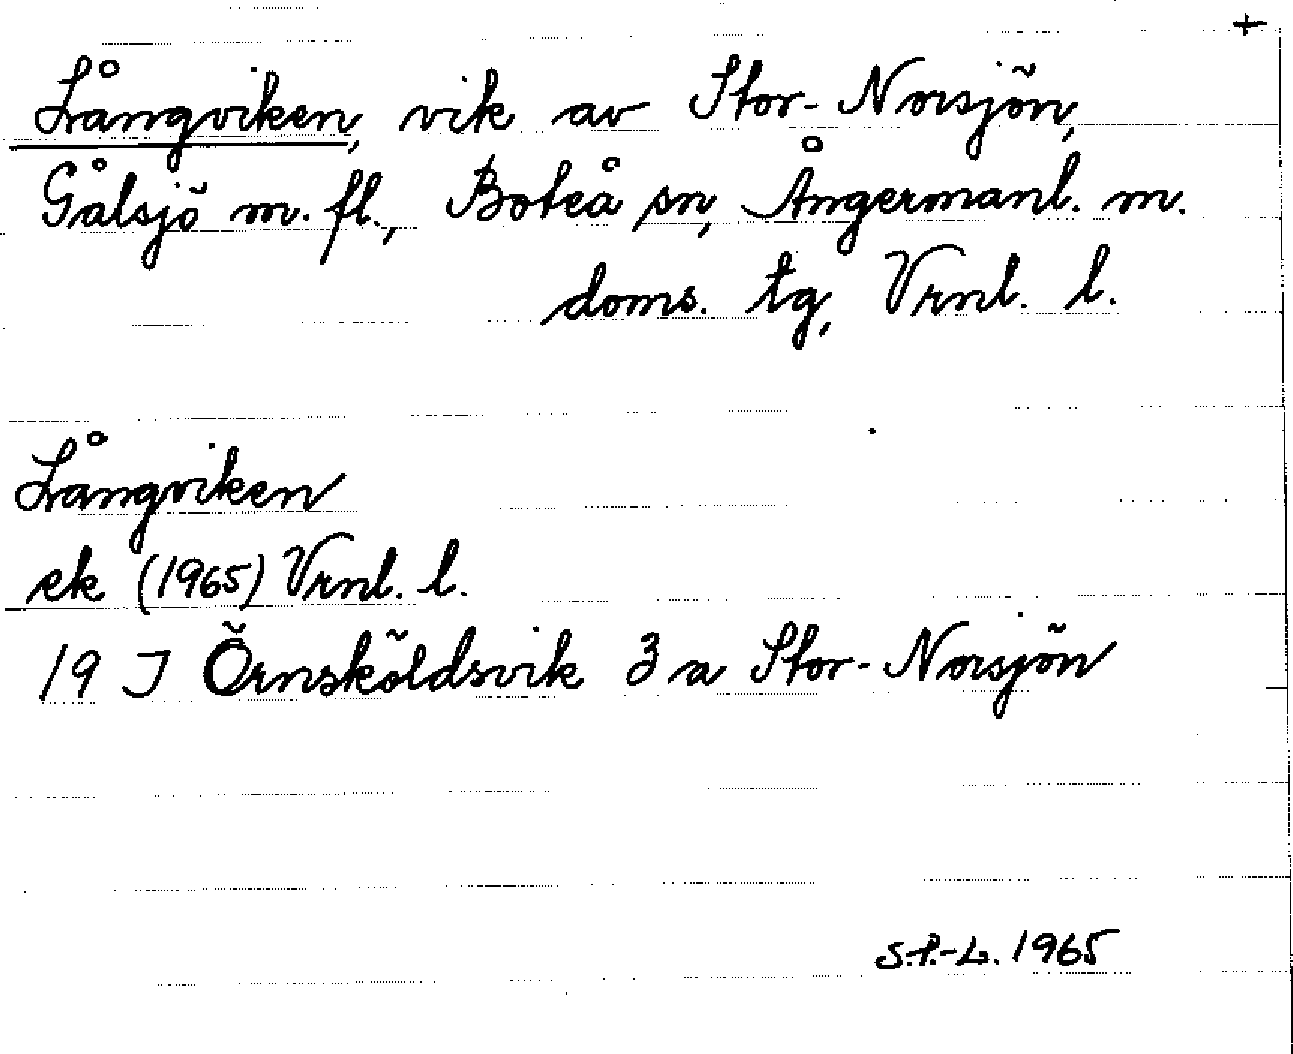 +
Långviken, vik av Stor-Norsjön,
Gålsjö m. fl., Boteå sn, Ångermanl. m.
doms. tg, Vrnl. l.
Långviken
ek (1965) Vrnl. l.
19 J Örnsköldsvik 3 a Stor-Norsjön
S.P.-L. 1965